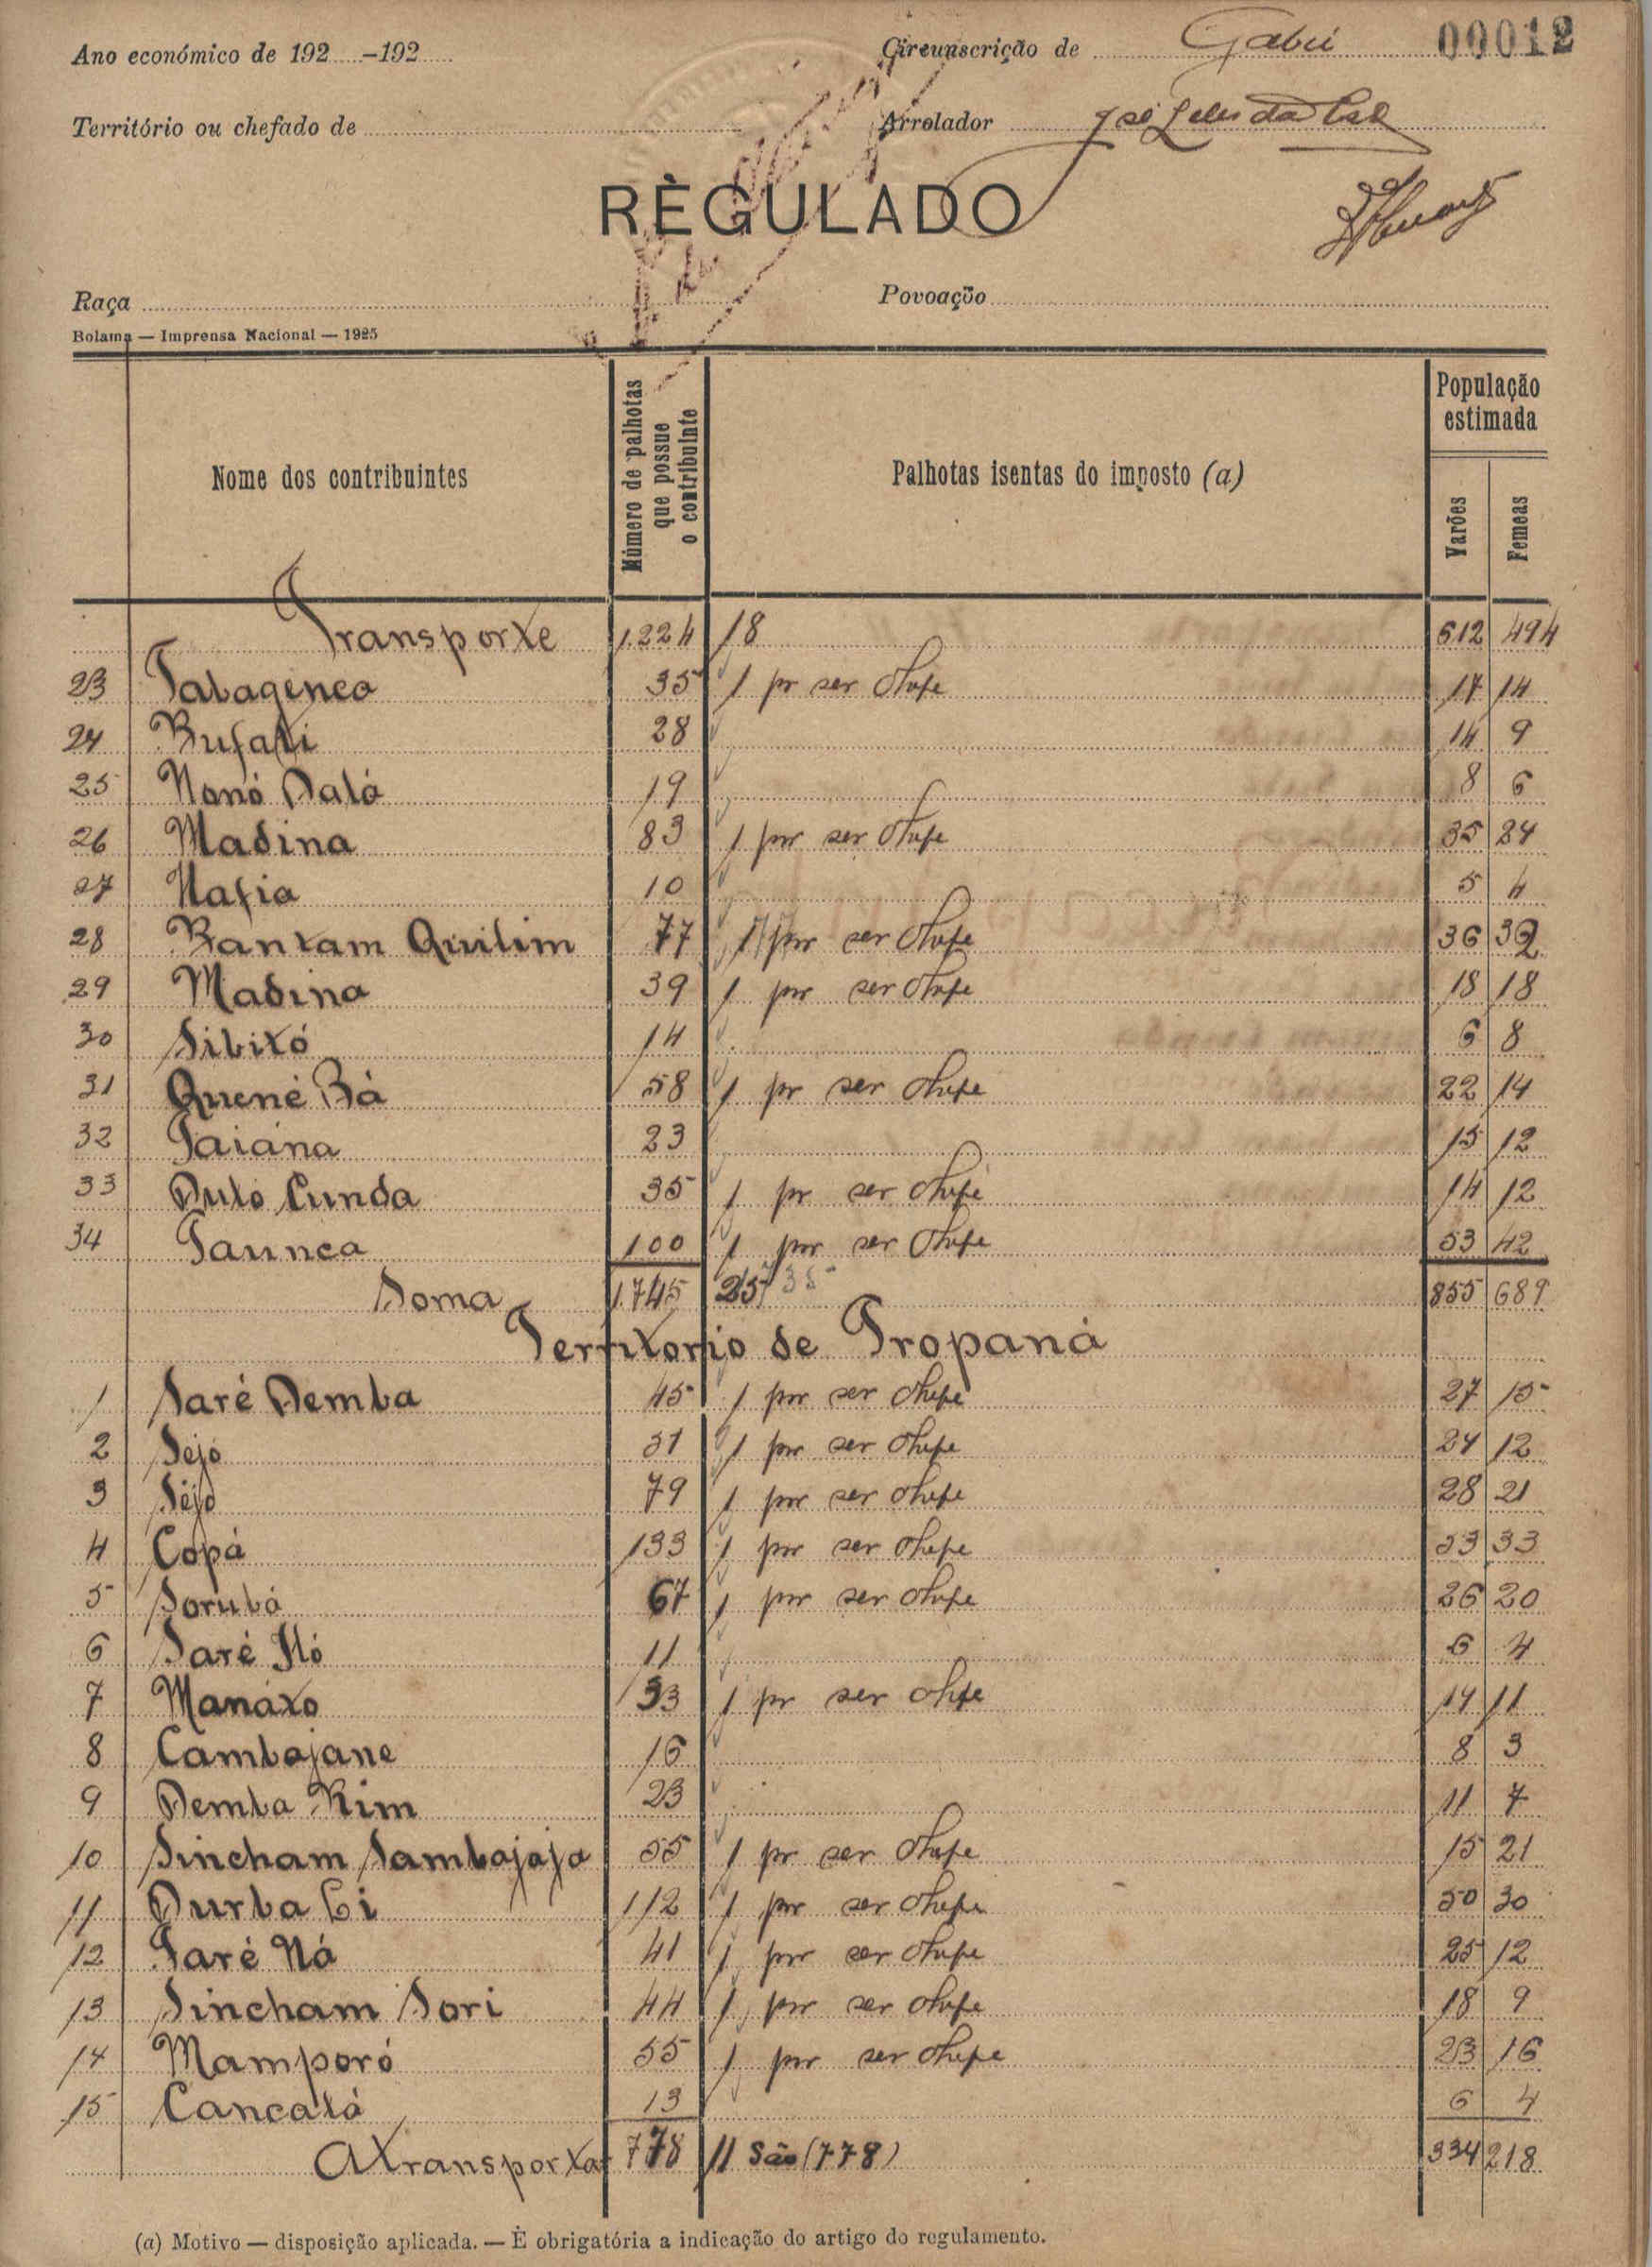 Ano económico de 192 –192 Circunscrição de Gabú 00012
Território ou chefado de Arrolador José
RÈGULADO
Raça Povoação
Bolama — Imprensa Nacional — 1925
Nome dos contribuintes Número de palhotas que possue o contribuinte Palhotas isentas do imposto (a) População estimada Varões Femeas
Transporte 1.224 18 612 494
23 Tabagenca 35 1 pr ser chefe 17 14
24 28 14 9
25 Nonó Daló 19 8 6
26 Madina 83 1 por ser chefe 35 24
27 Nafia 10 5 4
28 Bantam Quilim 77 1 por ser chefe 36 32
29 Madina 39 1 por ser chefe 18 18
30 Sibitó 14 6 8
31 Quené Bá 58 1 pr ser chefe 22 14
32 Taiána 23 15 12
33 Duto Cunda 35 1 pr ser chefe 14 12
34 Taunca 100 1 por ser chefe 53 42
Soma 1.745 25 855 689
Territorio de Propaná
1 Saré Demba 45 1 por ser chefe 27 15
2 Sejó 51 1 por ser chefe 24 12
3 Sejó 79 1 por ser chefe 28 21
4 Copá 133 1 por ser chefe 53 33
5 Sorubá 67 1 por ser chefe 26 20
6 Saré 11 6 4
7 Manáto 53 1 pr ser chefe 14 11
8 Cambajane 16 8 3
9 Demba Kim 23 11 7
10 Sincham Sambajaja 55 1 pr ser chefe 15 21
11 Durba Li 112 1 por ser chefe 50 30
12 Saré Ná 41 1 por ser chefe 25 12
13 Sincham Sori 44 1 por ser chefe 18 9
14 Mamporó 55 1 por ser chefe 23 16
15 Cancaló 13 6 4
A transportar 778 11 São (778) 334 218
(a) Motivo — disposição aplicada. — É obrigatória a indicação do artigo do regulamento.